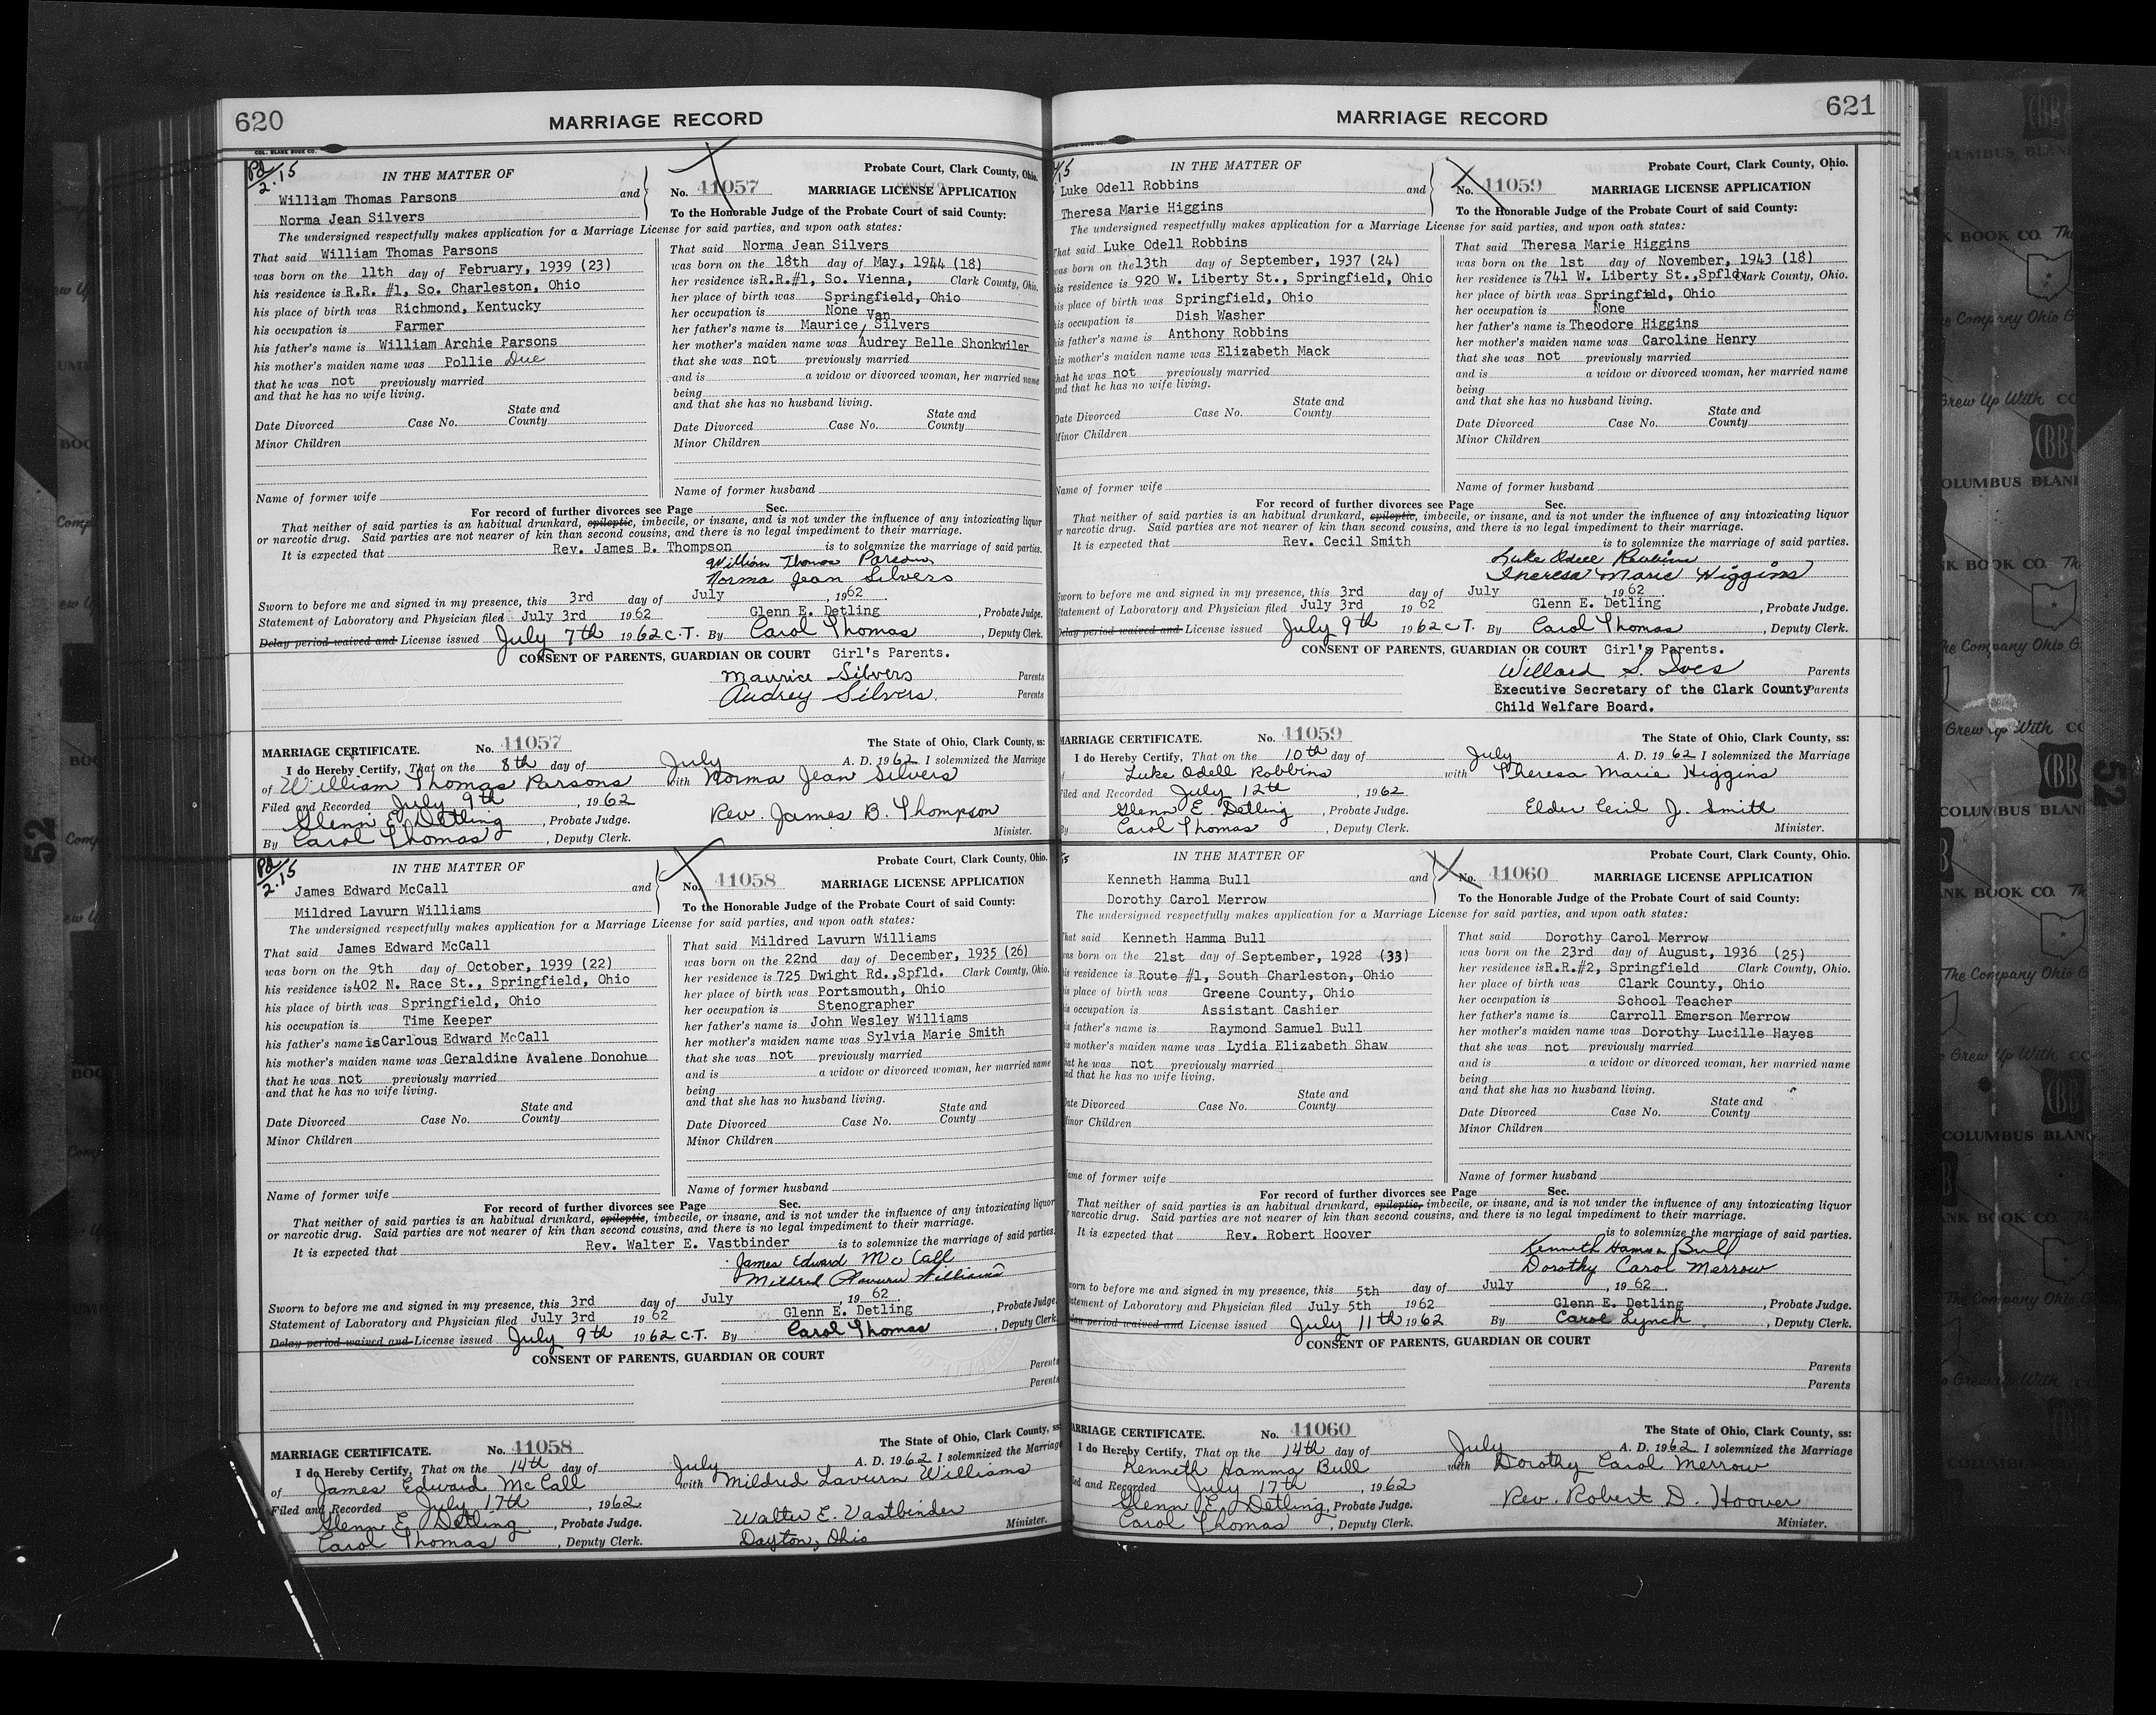 620
MARRIAGE RECORD
COL. BLANK BOOK CO.
Pd 2.15
IN THE MATTER OF
William Thomas Parsons and
Norma Jean Silvers
Probate Court, Clark County, Ohio.
No. 41057 MARRIAGE LICENSE APPLICATION
To the Honorable Judge of the Probate Court of said County:
The undersigned respectfully makes application for a Marriage License for said parties, and upon oath states:
That said William Thomas Parsons
was born on the 11th day of February, 1939 (23)
his residence is R.R. #1, So. Charleston, Ohio
his place of birth was Richmond, Kentucky
his occupation is Farmer
his father's name is William Archie Parsons
his mother's maiden name was Pollie Due
that he was not previously married
and that he has no wife living.
State and
Date Divorced Case No. County
Minor Children
Name of former wife
That said Norma Jean Silvers
was born on the 18th day of May, 1944 (18)
her residence is R.R.#1, So. Vienna, Clark County, Ohio.
her place of birth was Springfield, Ohio
her occupation is None
Van
her father's name is Maurice / Silvers
her mother's maiden name was Audrey Belle Shonkwiler
that she was not previously married
and is a widow or divorced woman, her married name
being
and that she has no husband living.
State and
Date Divorced Case No. County
Minor Children
Name of former husband
For record of further divorces see Page Sec.
That neither of said parties is an habitual drunkard, epileptic, imbecile, or insane, and is not under the influence of any intoxicating liquor
or narcotic drug. Said parties are not nearer of kin than second cousins, and there is no legal impediment to their marriage.
It is expected that Rev. James B. Thompson is to solemnize the marriage of said parties.
William Thomas Parsons
Norma Jean Silvers
Sworn to before me and signed in my presence, this 3rd day of July, 1962.
Statement of Laboratory and Physician filed July 3rd 1962 Glenn E. Detling, Probate Judge.
Delay period waived and License issued July 7th 1962 C.T. By Carol Thomas, Deputy Clerk.
CONSENT OF PARENTS, GUARDIAN OR COURT Girl's Parents.
Maurice Silvers Parents
Audrey Silvers. Parents
MARRIAGE CERTIFICATE. No. 41057 The State of Ohio, Clark County, ss:
I do Hereby Certify, That on the 8th day of July A. D. 1962 I solemnized the Marriage
of William Thomas Parsons with Norma Jean Silvers
Filed and Recorded July 9th, 1962
Glenn E. Detling, Probate Judge. Rev. James B. Thompson
By Carol Thomas, Deputy Clerk. Minister.
Pd 2.15
IN THE MATTER OF
James Edward McCall and
Mildred Lavurn Williams
Probate Court, Clark County, Ohio.
No. 41058 MARRIAGE LICENSE APPLICATION
To the Honorable Judge of the Probate Court of said County:
The undersigned respectfully makes application for a Marriage License for said parties, and upon oath states:
That said James Edward McCall
was born on the 9th day of October, 1939 (22)
his residence is 402 N. Race St., Springfield, Ohio
his place of birth was Springfield, Ohio
his occupation is Time Keeper
his father's name is Carlous Edward McCall
his mother's maiden name was Geraldine Avalene Donohue
that he was not previously married
and that he has no wife living.
State and
Date Divorced Case No. County
Minor Children
Name of former wife
That said Mildred Lavurn Williams
was born on the 22nd day of December, 1935 (26)
her residence is 725 Dwight Rd.,Spfld. Clark County, Ohio.
her place of birth was Portsmouth, Ohio
her occupation is Stenographer
her father's name is John Wesley Williams
her mother's maiden name was Sylvia Marie Smith
that she was not previously married
and is a widow or divorced woman, her married name
being
and that she has no husband living.
State and
Date Divorced Case No. County
Minor Children
Name of former husband
For record of further divorces see Page Sec.
That neither of said parties is an habitual drunkard, epileptic, imbecile, or insane, and is not under the influence of any intoxicating liquor
or narcotic drug. Said parties are not nearer of kin than second cousins, and there is no legal impediment to their marriage.
It is expected that Rev. Walter E. Vastbinder is to solemnize the marriage of said parties.
James Edward McCall
Mildred Lavurn Williams
Sworn to before me and signed in my presence, this 3rd day of July, 1962.
Statement of Laboratory and Physician filed July 3rd 1962 Glenn E. Detling, Probate Judge.
Delay period waived and License issued July 9th 1962 C.T. By Carol Thomas, Deputy Clerk.
CONSENT OF PARENTS, GUARDIAN OR COURT
Parents
Parents
MARRIAGE CERTIFICATE. No. 41058 The State of Ohio, Clark County, ss:
I do Hereby Certify, That on the 14th day of July A. D. 1962 I solemnized the Marriage
of James Edward McCall with Mildred Lavurn Williams
Filed and Recorded July 17th, 1962
Glenn E. Detling, Probate Judge. Walter E. Vastbinder
Carol Thomas, Deputy Clerk. Dayton, Ohio Minister.
MARRIAGE RECORD
621
IN THE MATTER OF
Luke Odell Robbins and
Theresa Marie Higgins
Probate Court, Clark County, Ohio.
No. 41059 MARRIAGE LICENSE APPLICATION
To the Honorable Judge of the Probate Court of said County:
The undersigned respectfully makes application for a Marriage License for said parties, and upon oath states:
That said Luke Odell Robbins
was born on the 13th day of September, 1937 (24)
his residence is 920 W. Liberty St., Springfield, Ohio
his place of birth was Springfield, Ohio
his occupation is Dish Washer
his father's name is Anthony Robbins
his mother's maiden name was Elizabeth Mack
that he was not previously married
and that he has no wife living.
State and
Date Divorced Case No. County
Minor Children
Name of former wife
That said Theresa Marie Higgins
was born on the 1st day of November, 1943 (18)
her residence is 741 W. Liberty St.,Spfld. Clark County, Ohio.
her place of birth was Springfield, Ohio
her occupation is None
her father's name is Theodore Higgins
her mother's maiden name was Caroline Henry
that she was not previously married
and is a widow or divorced woman, her married name
being
and that she has no husband living.
State and
Date Divorced Case No. County
Minor Children
Name of former husband
For record of further divorces see Page Sec.
That neither of said parties is an habitual drunkard, epileptic, imbecile, or insane, and is not under the influence of any intoxicating liquor
or narcotic drug. Said parties are not nearer of kin than second cousins, and there is no legal impediment to their marriage.
It is expected that Rev. Cecil Smith is to solemnize the marriage of said parties.
Luke Odell Robbins
Theresa Marie Higgins
Sworn to before me and signed in my presence, this 3rd day of July, 1962
Statement of Laboratory and Physician filed July 3rd 1962 Glenn E. Detling, Probate Judge.
Delay period waived and License issued July 9th 1962 C.T. By Carol Thomas, Deputy Clerk.
CONSENT OF PARENTS, GUARDIAN OR COURT Girl's Parents.
Willard S. Ives Parents
Executive Secretary of the Clark County Parents
Child Welfare Board.
MARRIAGE CERTIFICATE. No. 41059 The State of Ohio, Clark County, ss:
I do Hereby Certify, That on the 10th day of July A. D. 1962 I solemnized the Marriage
Luke Odell Robbins with Theresa Marie Higgins
Filed and Recorded July 12th, 1962
Glenn E. Detling, Probate Judge. Elder Cecil J. Smith
By Carol Thomas, Deputy Clerk. Minister.
IN THE MATTER OF
Kenneth Hamma Bull and
Dorothy Carol Merrow
Probate Court, Clark County, Ohio.
No. 41060 MARRIAGE LICENSE APPLICATION
To the Honorable Judge of the Probate Court of said County:
The undersigned respectfully makes application for a Marriage License for said parties, and upon oath states:
That said Kenneth Hamma Bull
was born on the 21st day of September, 1928 (33)
his residence is Route #1, South Charleston, Ohio
his place of birth was Greene County, Ohio
his occupation is Assistant Cashier
his father's name is Raymond Samuel Bull
his mother's maiden name was Lydia Elizabeth Shaw
that he was not previously married
and that he has no wife living.
State and
Date Divorced Case No. County
Minor Children
Name of former wife
That said Dorothy Carol Merrow
was born on the 23rd day of August, 1936 (25)
her residence is R.R.#2, Springfield Clark County, Ohio.
her place of birth was Clark County, Ohio
her occupation is School Teacher
her father's name is Carroll Emerson Merrow
her mother's maiden name was Dorothy Lucille Hayes
that she was not previously married
and is a widow or divorced woman, her married name
being
and that she has no husband living.
State and
Date Divorced Case No. County
Minor Children
Name of former husband
For record of further divorces see Page Sec.
That neither of said parties is an habitual drunkard, epileptic, imbecile, or insane, and is not under the influence of any intoxicating liquor
or narcotic drug. Said parties are not nearer of kin than second cousins, and there is no legal impediment to their marriage.
It is expected that Rev. Robert Hoover is to solemnize the marriage of said parties.
Kenneth Hamma Bull
Dorothy Carol Merrow
Sworn to before me and signed in my presence, this 5th day of July, 1962.
Statement of Laboratory and Physician filed July 5th 1962 Glenn E. Detling, Probate Judge.
Delay period waived and License issued July 11th 1962 By Carol Lynch, Deputy Clerk.
CONSENT OF PARENTS, GUARDIAN OR COURT
Parents
Parents
MARRIAGE CERTIFICATE. No. 41060 The State of Ohio, Clark County, ss:
I do Hereby Certify, That on the 14th day of July A. D. 1962 I solemnized the Marriage
Kenneth Hamma Bull with Dorothy Carol Merrow
Filed and Recorded July 17th, 1962
Glenn E. Detling, Probate Judge. Rev. Robert D. Hoover
Carol Thomas, Deputy Clerk. Minister.